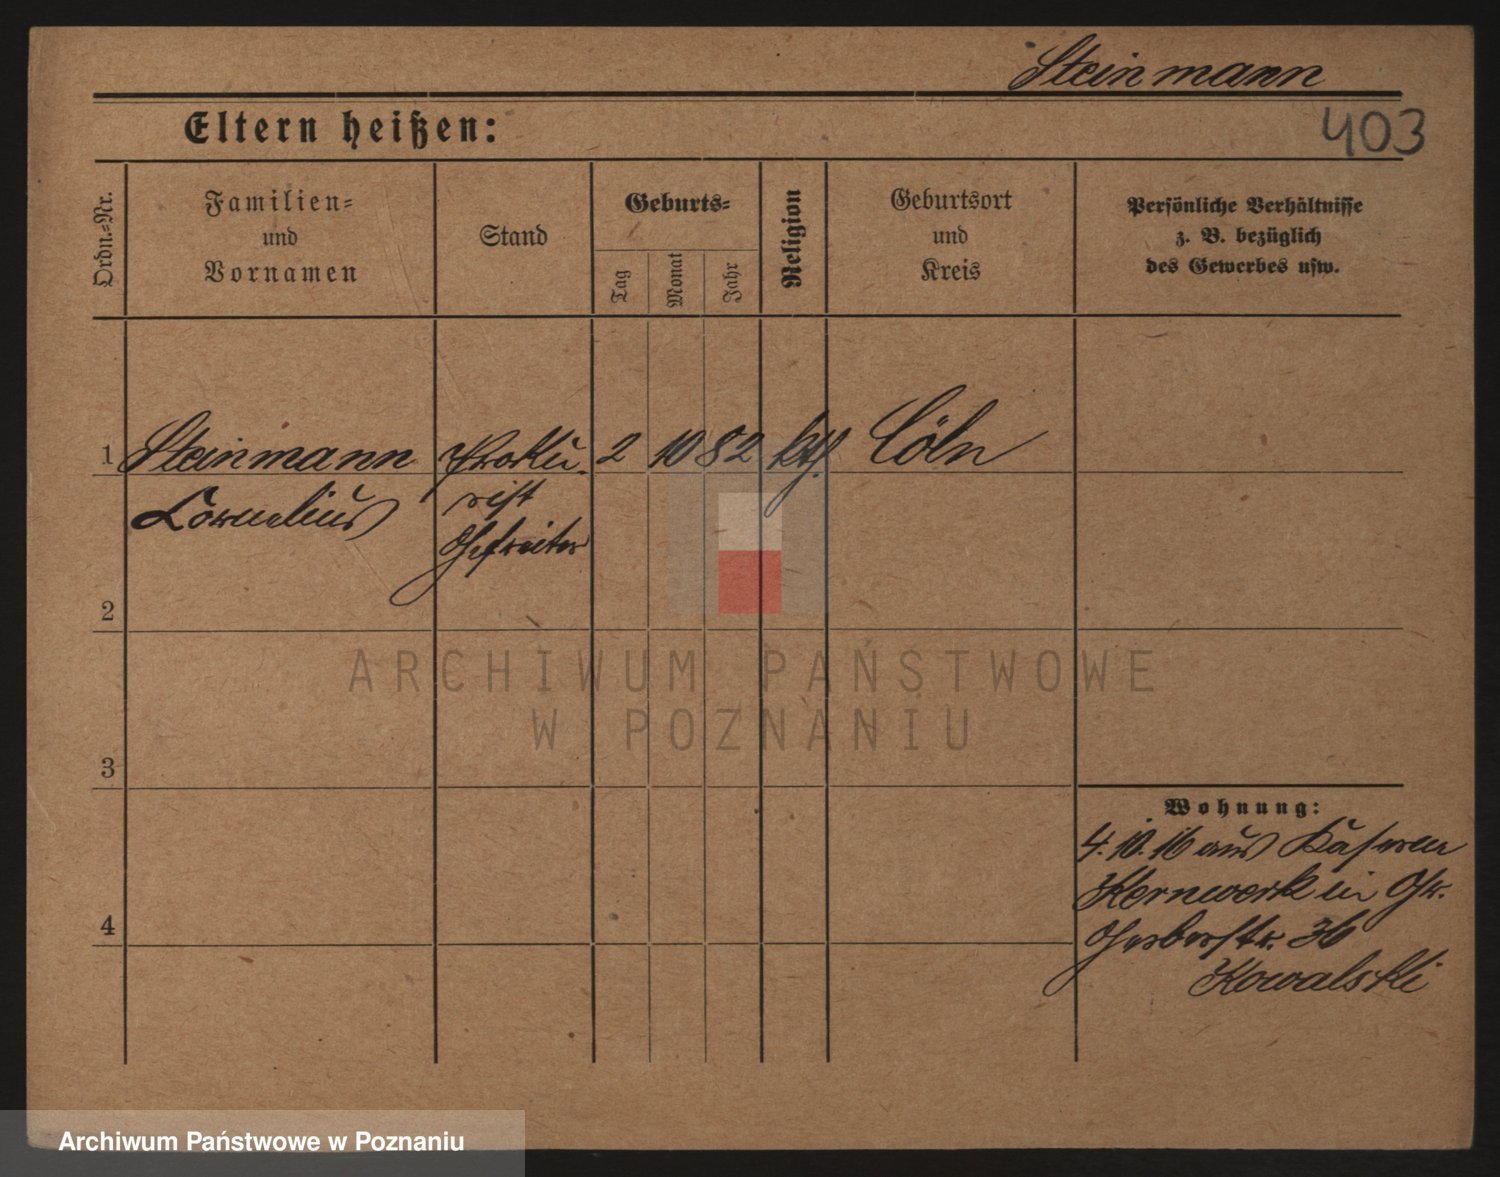 Steinmann
403
Eltern heißen:
Ordn.-Nr.
Familien-
und
Vornamen
Stand
Geburts-
Tag
Monat
Jahr
Religion
Geburtsort
und
Kreis
Persönliche Verhältnisse
z. B. bezüglich
des Gewerbes usw.
1 Steinmann Proku- 2 10 82 kth. Cöln
Cornelius rist
Gefreiter
2
3
4
Wohnung:
4.10.16 aus Kaserne
Kernwerk in Gr.
Gerberstr. 36
Kowalski
ARCHIWUM PAŃSTWOWE
W POZNANIU
Archiwum Państwowe w Poznaniu